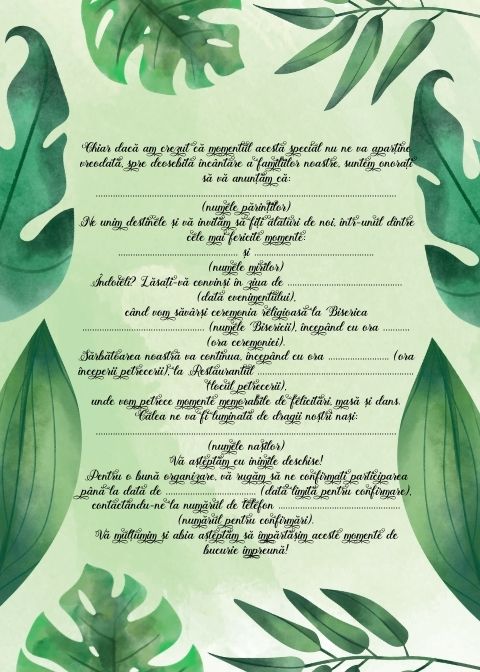 Chiar dacă am crezut că momentul acesta special nu ne va aparține
vreodată, spre deosebita încântare a familiilor noastre, suntem onorați
să vă anunțăm că:
........................................................................
(numele părinților)
Ne unim destinele și vă invităm să fiți alături de noi, într-unul dintre
cele mai fericite momente:
................................ și ................................
(numele mirilor)
Îndoieli? Lăsați-vă convinși în ziua de ................................
(data evenimentului),
când vom săvârși ceremonia religioasă la Biserica
................................ (numele Bisericii), începând cu ora ............
(ora ceremoniei).
Sărbătoarea noastră va continua, începând cu ora ................ (ora
începerii petrecerii), la Restaurantul ................................
(locul petrecerii),
unde vom petrece momente memorabile de felicitări, masă și dans.
Calea ne va fi luminată de dragii noștri nași:
........................................................................
(numele nașilor)
Vă așteptăm cu inimile deschise!
Pentru o bună organizare, vă rugăm să ne confirmați participarea
până la data de ........................ (data limită pentru confirmare),
contactându-ne la numărul de telefon ................................
(numărul pentru confirmări).
Vă mulțumim și abia așteptăm să împărtășim aceste momente de
bucurie împreună!